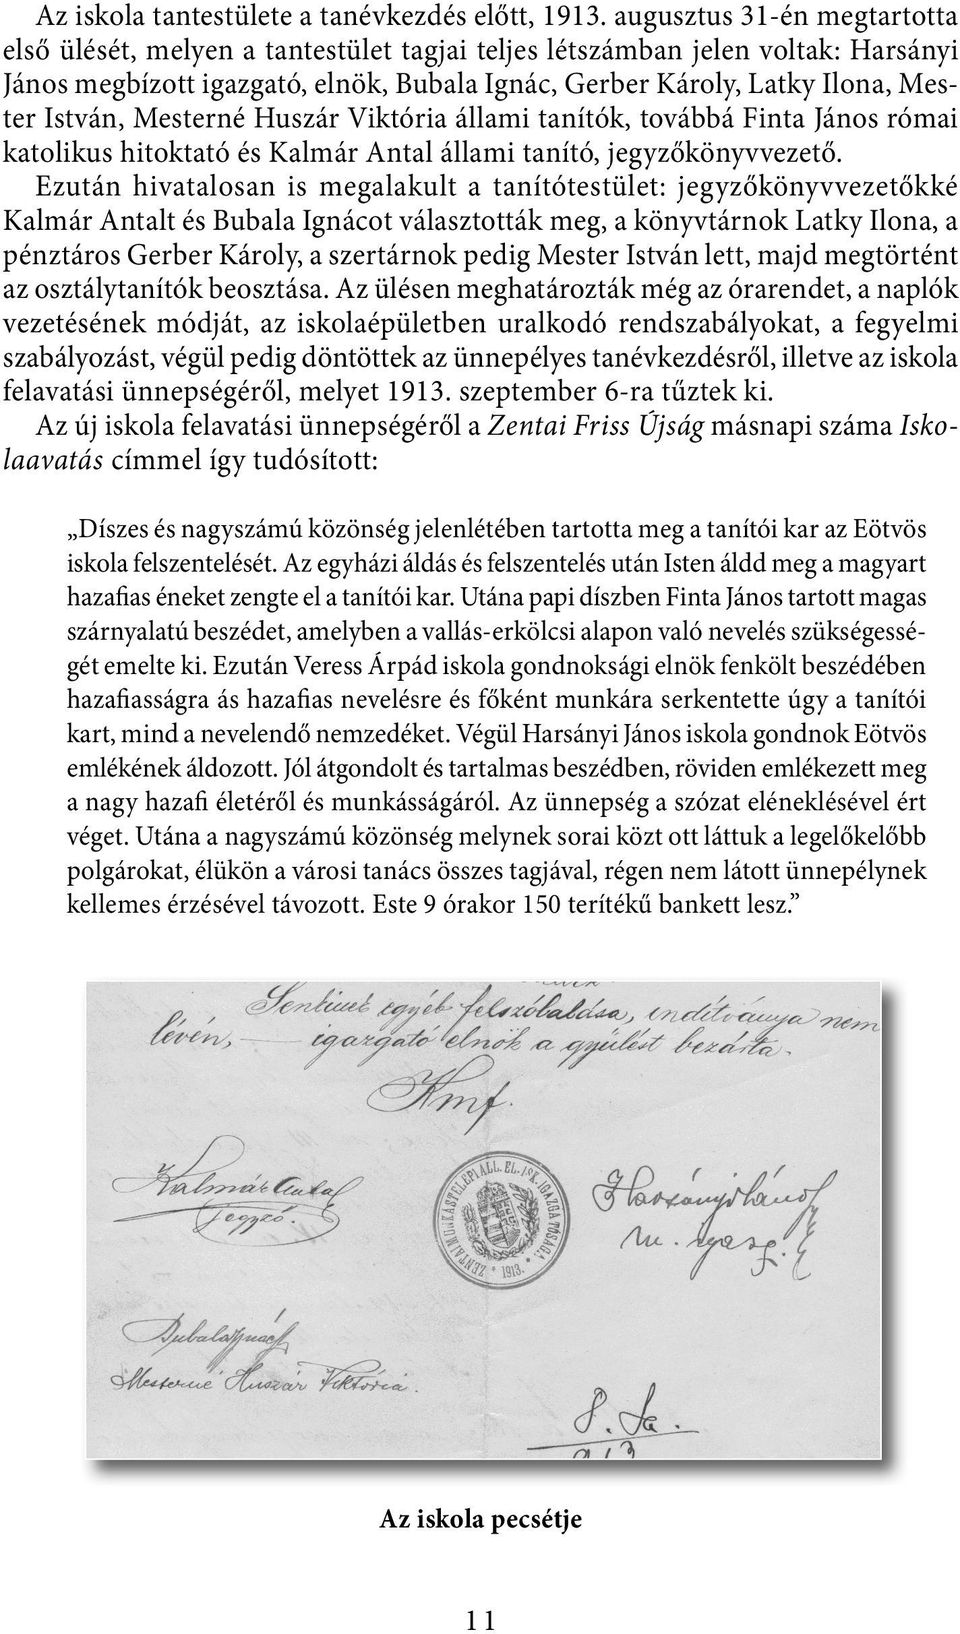 Az iskola tantestülete a tanévkezdés előtt, 1913. augusztus 31-én megtartotta
első ülését, melyen a tantestület tagjai teljes létszámban jelen voltak: Harsányi
János megbízott igazgató, elnök, Bubala Ignác, Gerber Károly, Latky Ilona, Mes-
ter István, Mesterné Huszár Viktória állami tanítók, továbbá Finta János római
katolikus hitoktató és Kalmár Antal állami tanító, jegyzőkönyvvezető.
Ezután hivatalosan is megalakult a tanítótestület: jegyzőkönyvvezetőkké
Kalmár Antalt és Bubala Ignácot választották meg, a könyvtárnok Latky Ilona, a
pénztáros Gerber Károly, a szertárnok pedig Mester István lett, majd megtörtént
az osztálytanítók beosztása. Az ülésen meghatározták még az órarendet, a naplók
vezetésének módját, az iskolaépületben uralkodó rendszabályokat, a fegyelmi
szabályozást, végül pedig döntöttek az ünnepélyes tanévkezdésről, illetve az iskola
felavatási ünnepségéről, melyet 1913. szeptember 6-ra tűztek ki.
Az új iskola felavatási ünnepségéről a Zentai Friss Újság másnapi száma Isko-
laavatás címmel így tudósított:
„Díszes és nagyszámú közönség jelenlétében tartotta meg a tanítói kar az Eötvös
iskola felszentelését. Az egyházi áldás és felszentelés után Isten áldd meg a magyart
hazafias éneket zengte el a tanítói kar. Utána papi díszben Finta János tartott magas
szárnyalatú beszédet, amelyben a vallás-erkölcsi alapon való nevelés szükségessé-
gét emelte ki. Ezután Veress Árpád iskola gondnoksági elnök fenkölt beszédében
hazafiasságra ás hazafias nevelésre és főként munkára serkentette úgy a tanítói
kart, mind a nevelendő nemzedéket. Végül Harsányi János iskola gondnok Eötvös
emlékének áldozott. Jól átgondolt és tartalmas beszédben, röviden emlékezett meg
a nagy hazafi életéről és munkásságáról. Az ünnepség a szózat eléneklésével ért
véget. Utána a nagyszámú közönség melynek sorai közt ott láttuk a legelőkelőbb
polgárokat, élükön a városi tanács összes tagjával, régen nem látott ünnepélynek
kellemes érzésével távozott. Este 9 órakor 150 terítékű bankett lesz.”
egyéb felszólalása, indítványa nem
lévén, — igazgató elnök a gyűlést bezárta.
Kmf.
Kalmár Antal
jegyző.
ZENTAI MUNKÁSTELEPI ÁLL. EL. ISK. IGAZGATÓSÁGA * 1913. *
Harsányi János
m. igazg.
Bubala Ignác
Mesterné Huszár Viktória.
913
Az iskola pecsétje
11